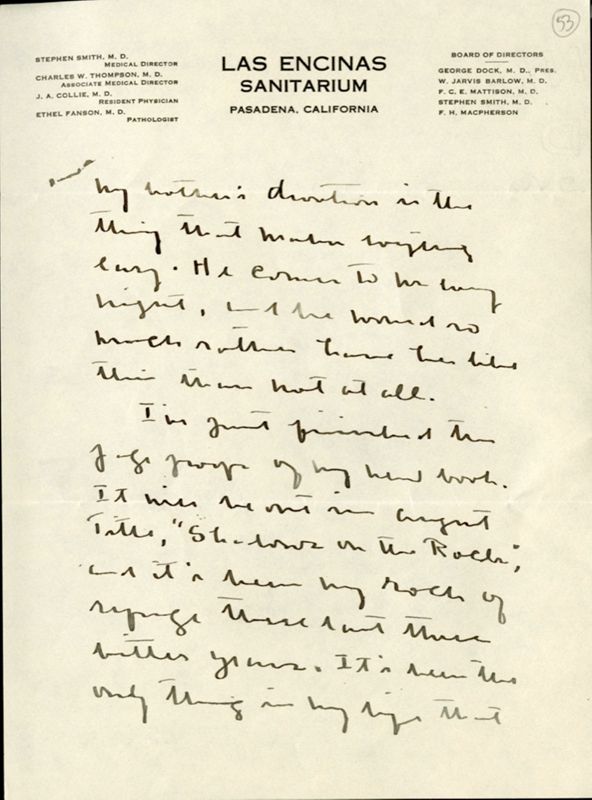 53
STEPHEN SMITH, M. D.
MEDICAL DIRECTOR
CHARLES W. THOMPSON, M. D.
ASSOCIATE MEDICAL DIRECTOR
J. A. COLLIE, M. D.
RESIDENT PHYSICIAN
ETHEL FANSON, M. D.
PATHOLOGIST
LAS ENCINAS
SANITARIUM
PASADENA, CALIFORNIA
BOARD OF DIRECTORS
GEORGE DOCK, M. D., PRES.
W. JARVIS BARLOW, M. D.
F. C. E. MATTISON, M. D.
STEPHEN SMITH, M. D.
F. H. MACPHERSON
My brother's devotion is the
thing that makes everything
easy. He comes to her every
night, and he would so
much rather have her like
this than not at all.
I've just finished the
page proofs of my new book.
It will be out in August
Title, "Shadows on the Rock",
and it's been my rock of
refuge these last three
bitter years. It's been the
only thing in my life that